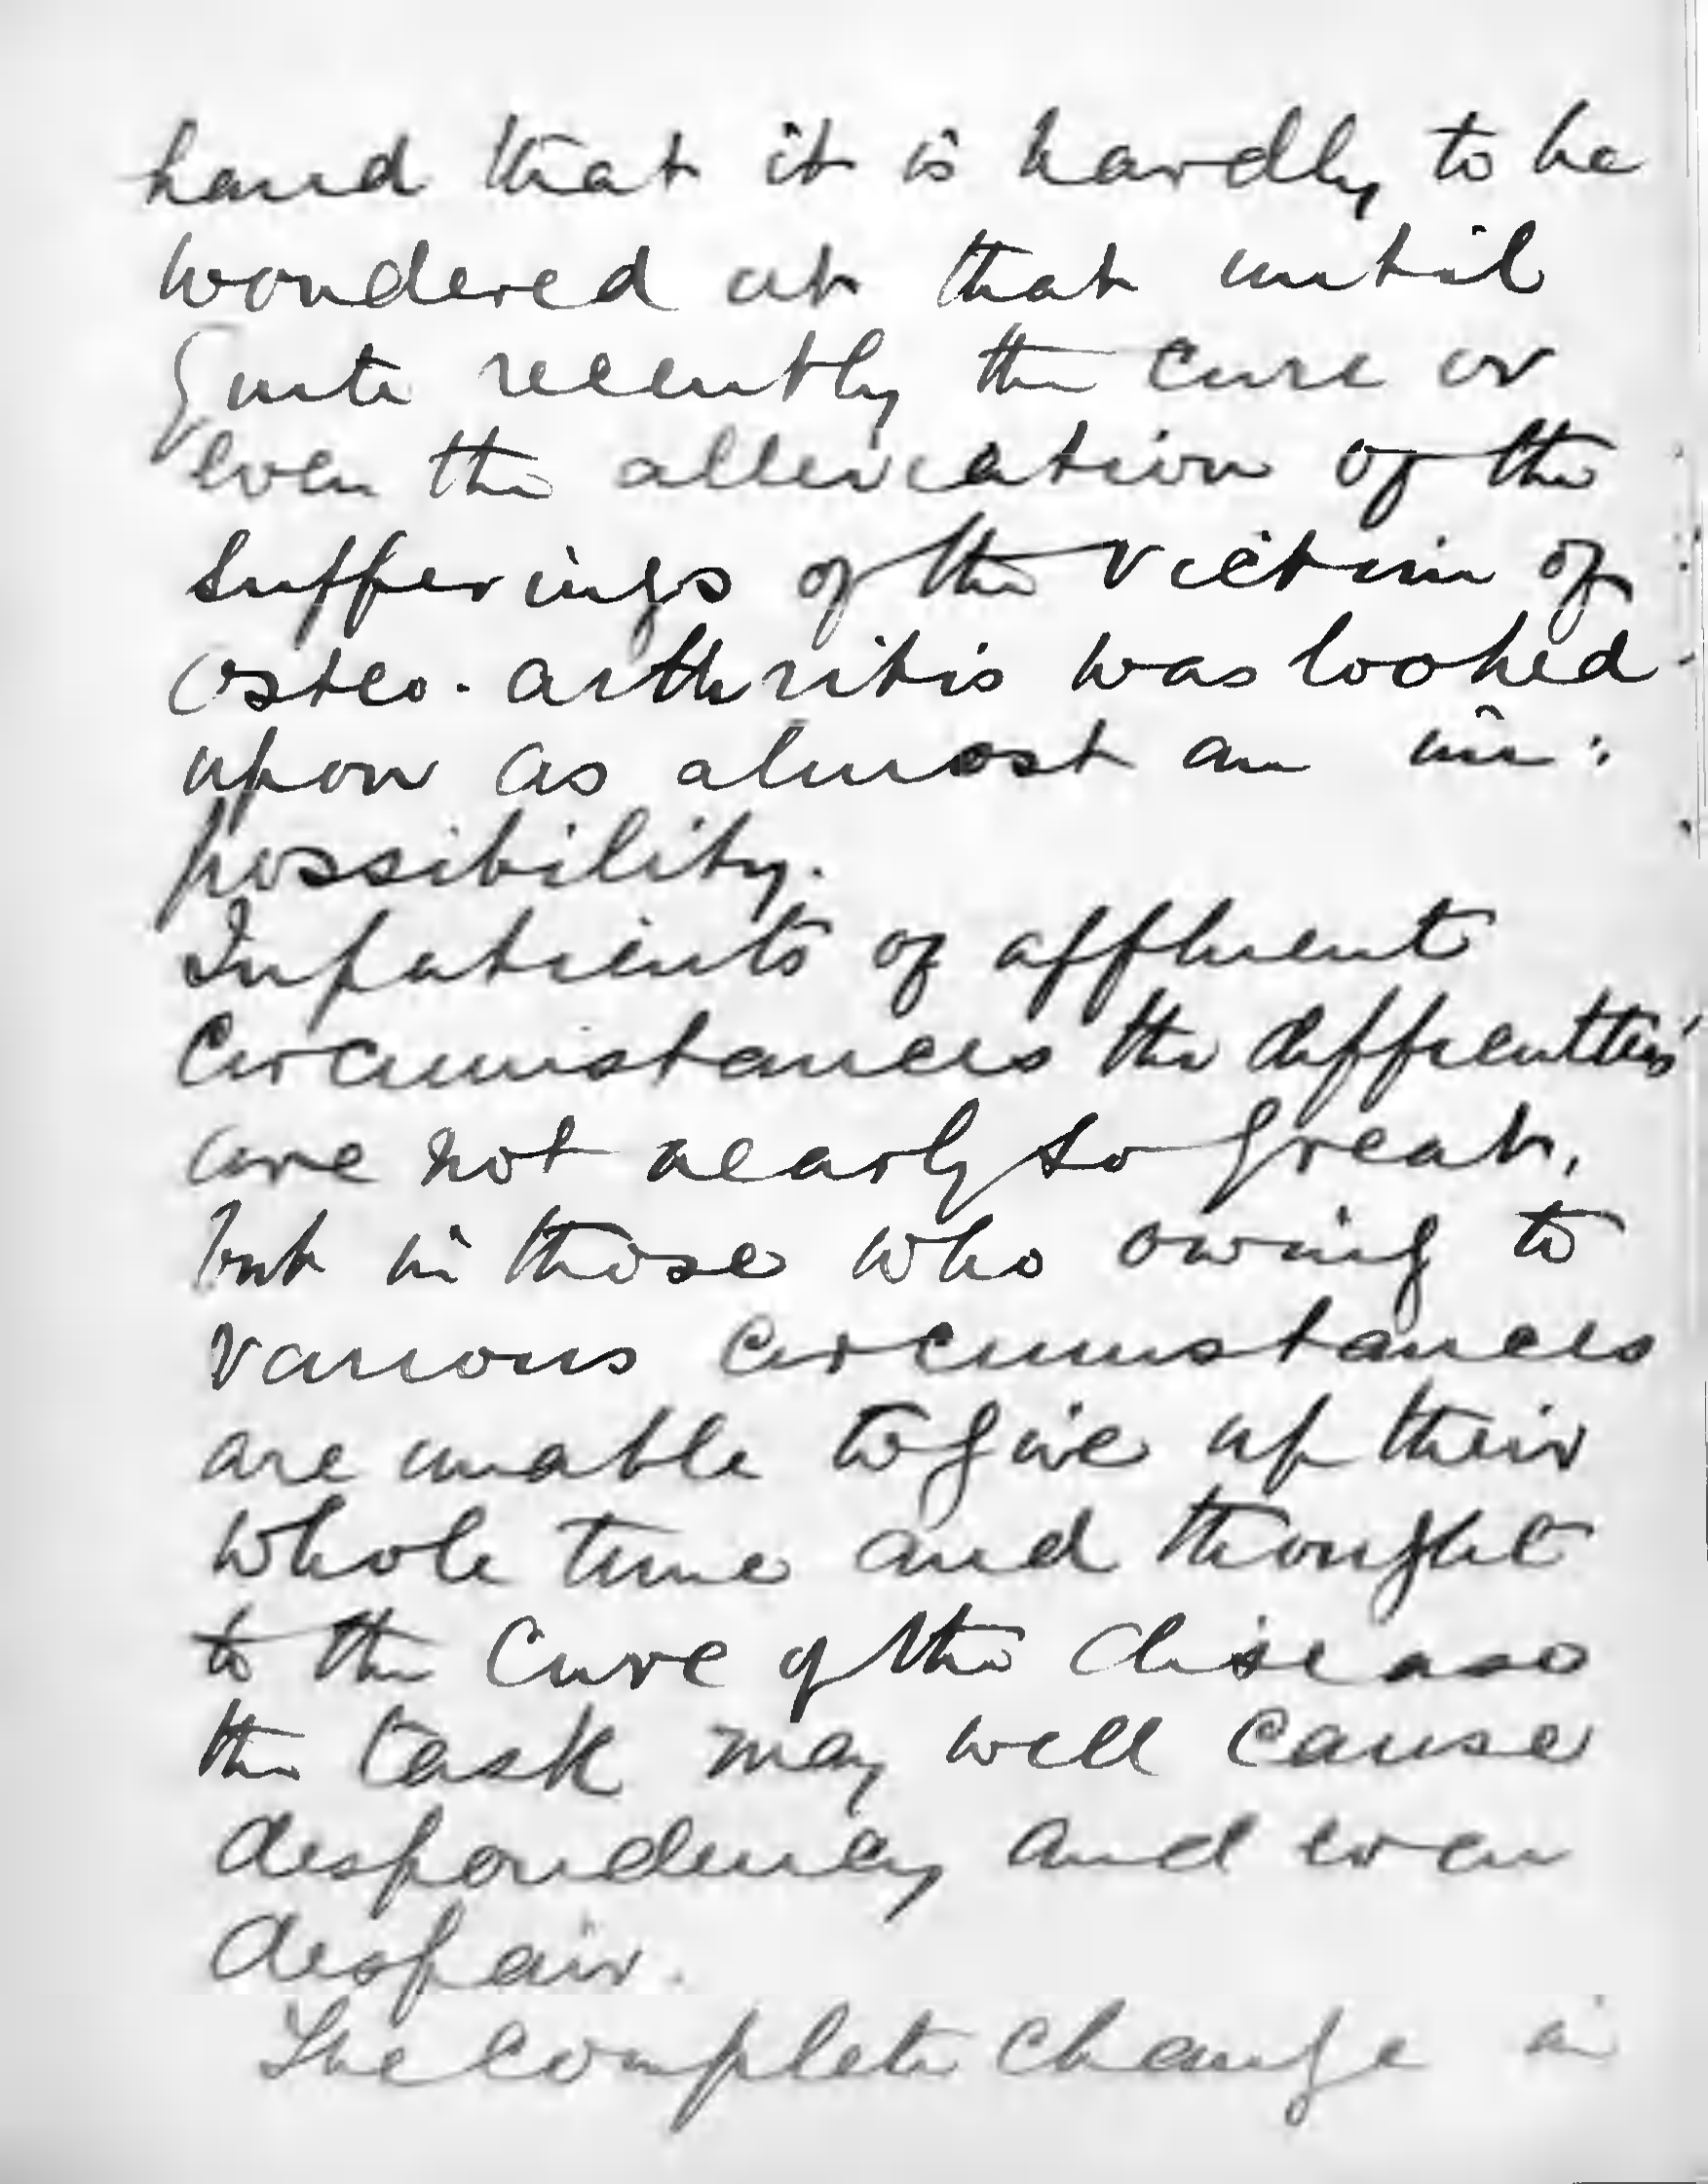 hand that it is hardly to be
wondered at that until
quite recently the cure or
even the alleviation of the
sufferings of the victim of
Osteo-arthritis was looked
upon as almost an im:
possibility.
In patients of affluent
circumstances the difficulties
are not nearly so great,
but in those who owing to
various circumstances
are unable to give up their
whole time and thought
to the cure of the disease
the task may well cause
despondency and even
despair.
The complete change in